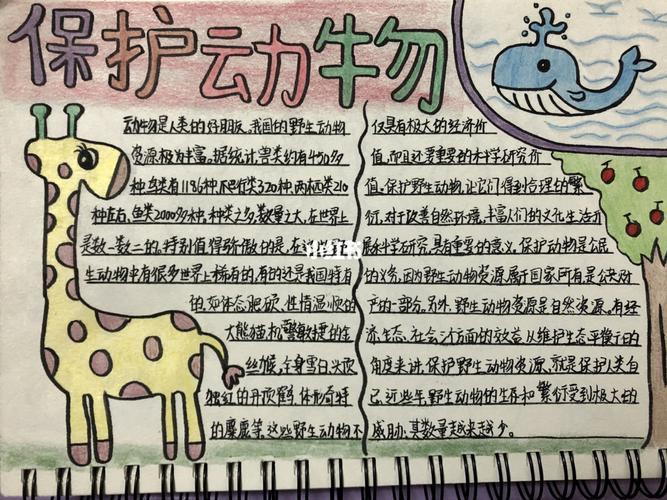 保护动物
动物是人类的好朋友,我国的野生动物
资源极为丰富,据统计,兽类约有450多
种,鸟类有1186种,爬行类320种,两栖类210
种左右,鱼类2000多种,种类之多,数量之大,在世界上
是数一数二的。特别值得骄傲的是,在这些野
生动物中有很多世界上稀有的,有的还是我国特有
的,如体态肥硕、性情温顺的
大熊猫,机警敏捷的金
丝猴,全身雪白,头顶
独红的丹顶鹤,体形奇特
的麋鹿等,这些野生动物不
仅具有极大的经济价
值,而且还要重要的科学研究价
值。保护野生动物,让它们得到合理的繁
衍,对于改善自然环境,丰富人们的文化生活,开
展科学研究,具有重要的意义,保护动物是公民
的义务,因为野生动物资源属于国家所有,是公共财
产的一部分。另外,野生动物资源是自然资源,有经
济、生态、社会沙方面的效益,从维护生态平衡的
角度来讲,保护野生动物资源,就是保护人类自
己,近些年,野生动物的生存和繁衍受到极大的
威胁,其数量越来越少。
小红书